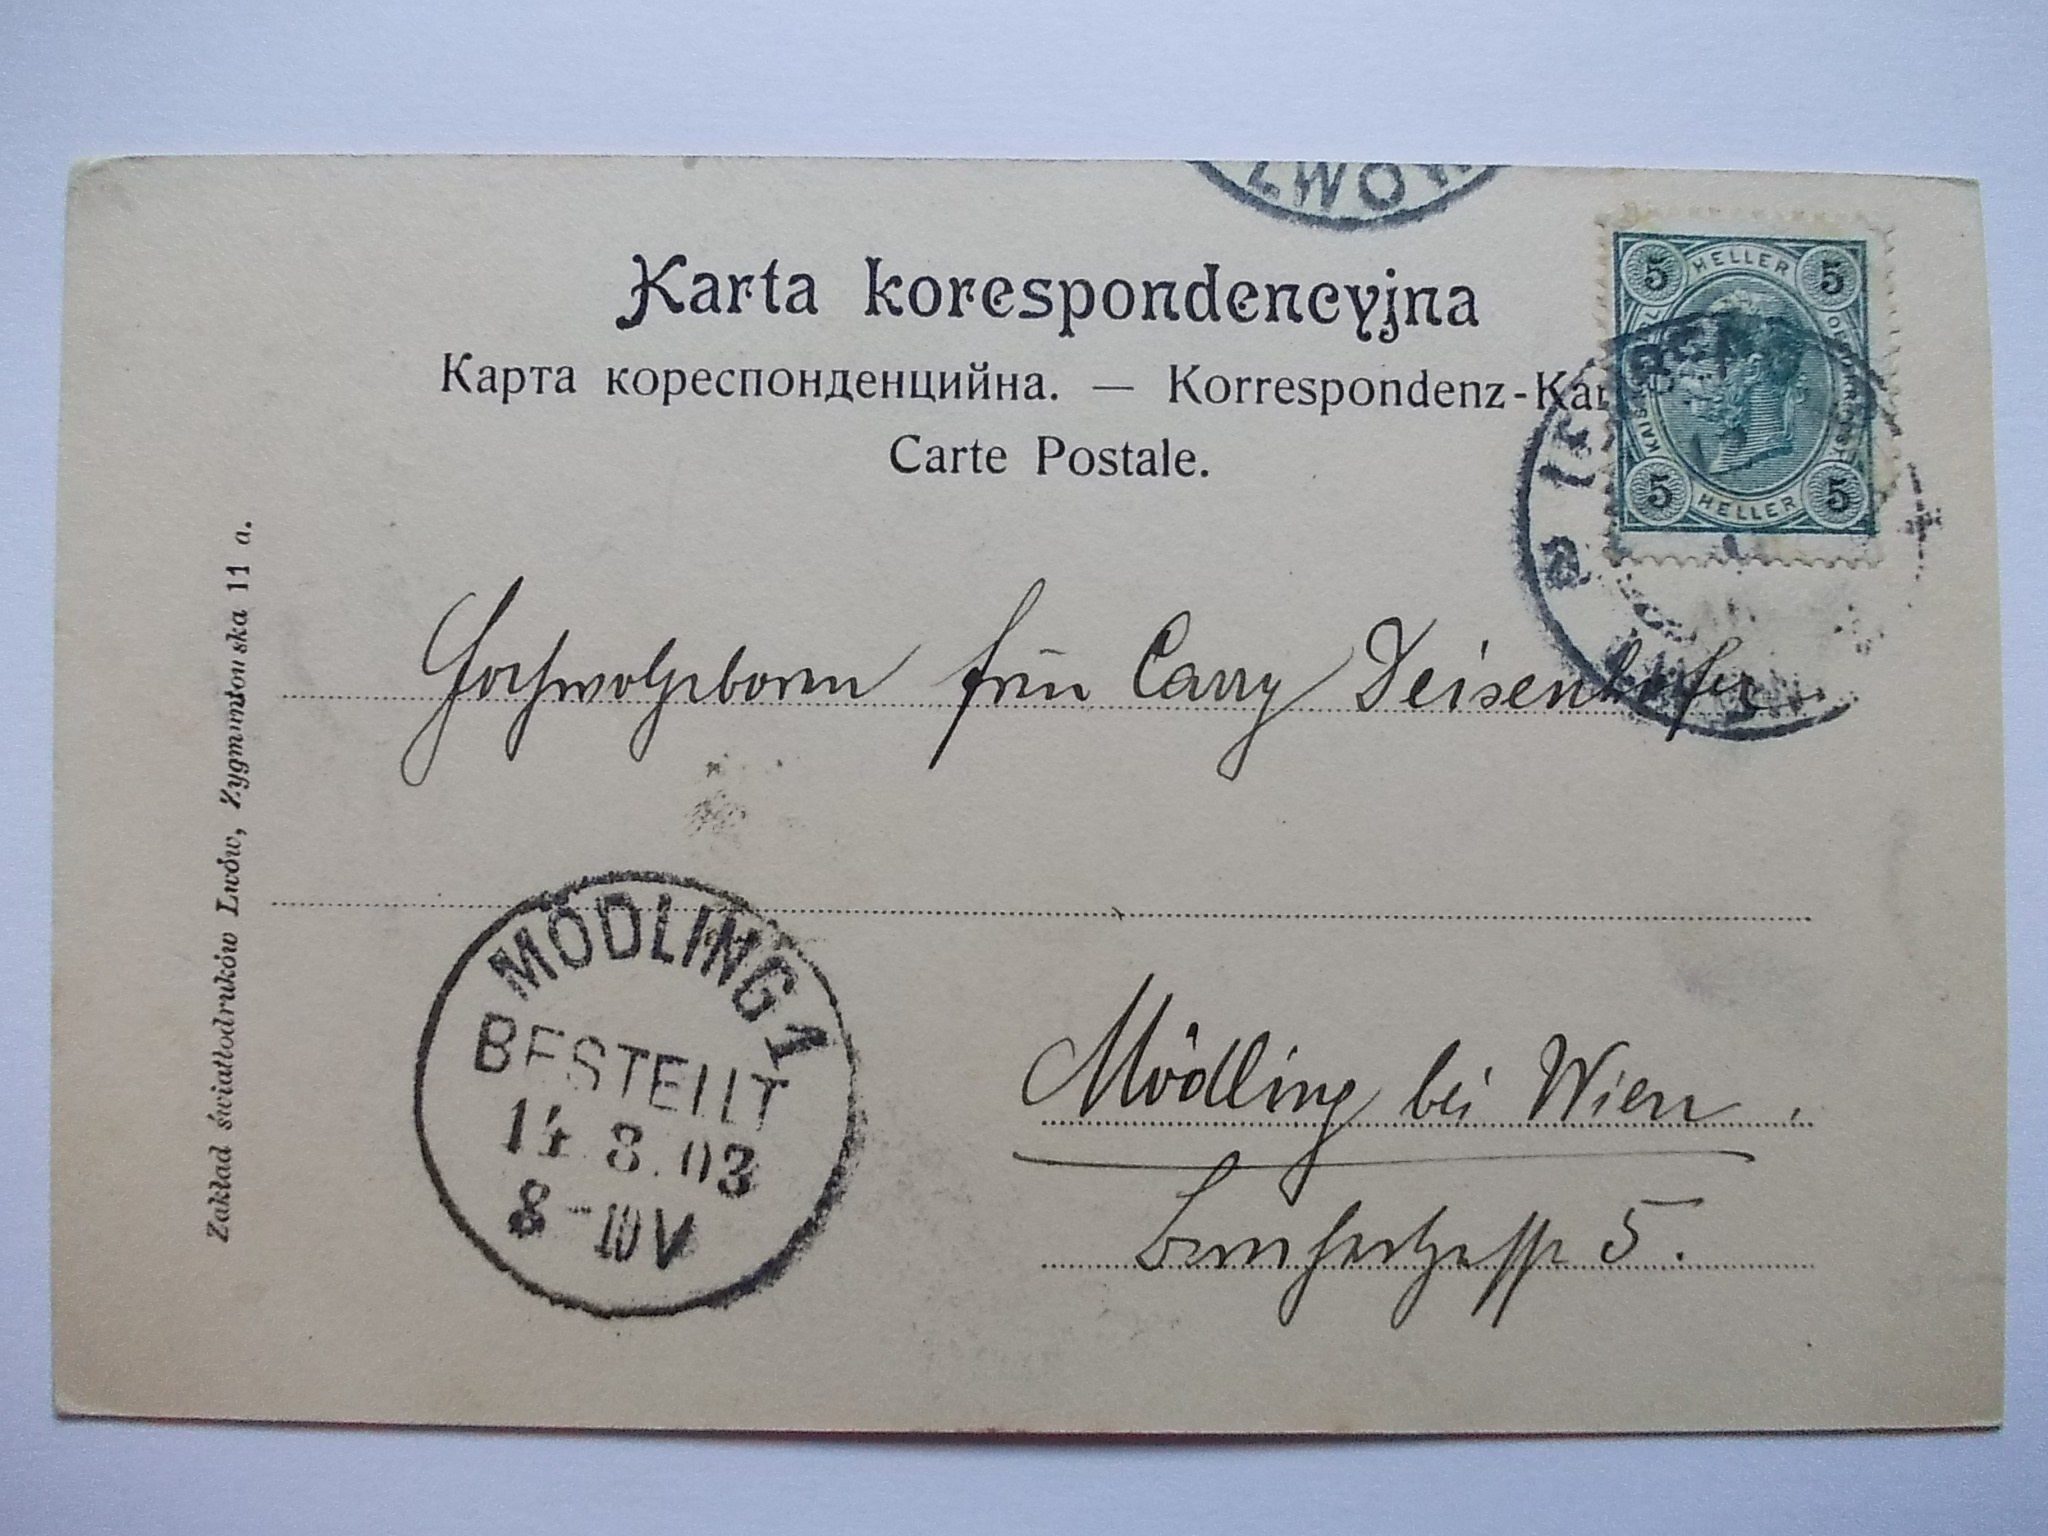 LWÓW
Karta korespondencyjna
Карта кореспонденцийна. — Korrespondenz-Kar
Carte Postale.
HELLER
5 5
5 5
HELLER
Hochwolgeboren Frau Carry Deisenhofer
MÖDLING 1
BESTELLT
14.8.03
8-10V
Mödling bei Wien.
5.
Zakład światłodruków Lwów, Zygmuntowska 11 a.